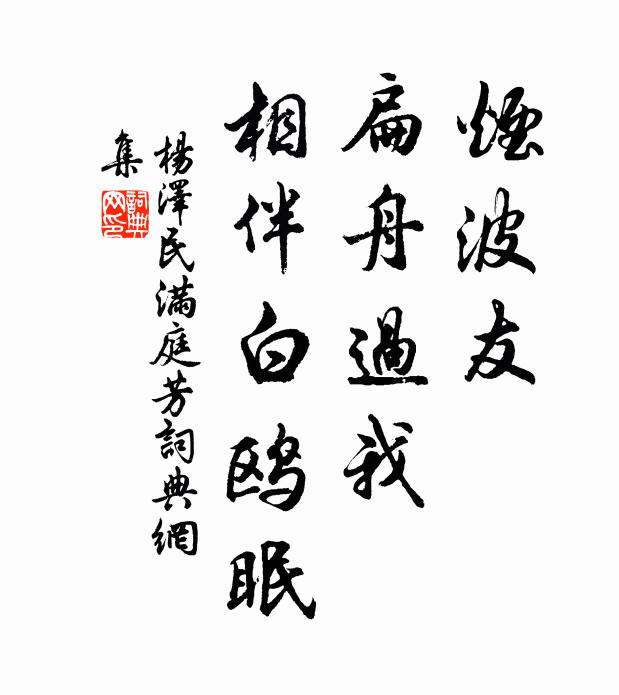 煙波友
扁舟過我
相伴白鸥眠
楊澤民滿庭芳詞典網
集
詞典
网印